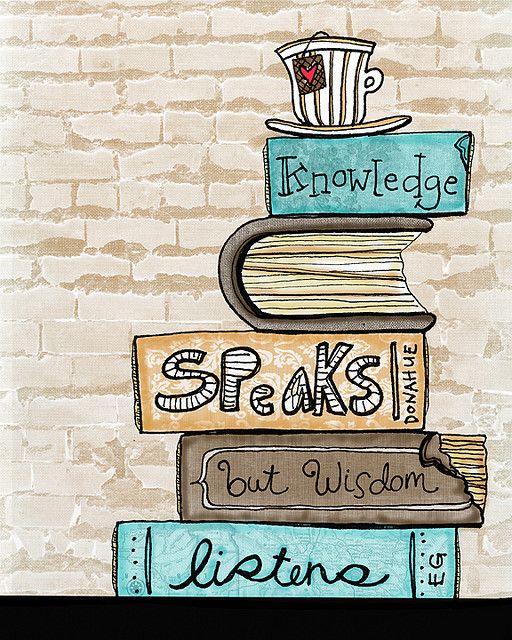 Knowledge
SPeaKS
DONAHUE
but Wisdom
listens
EG